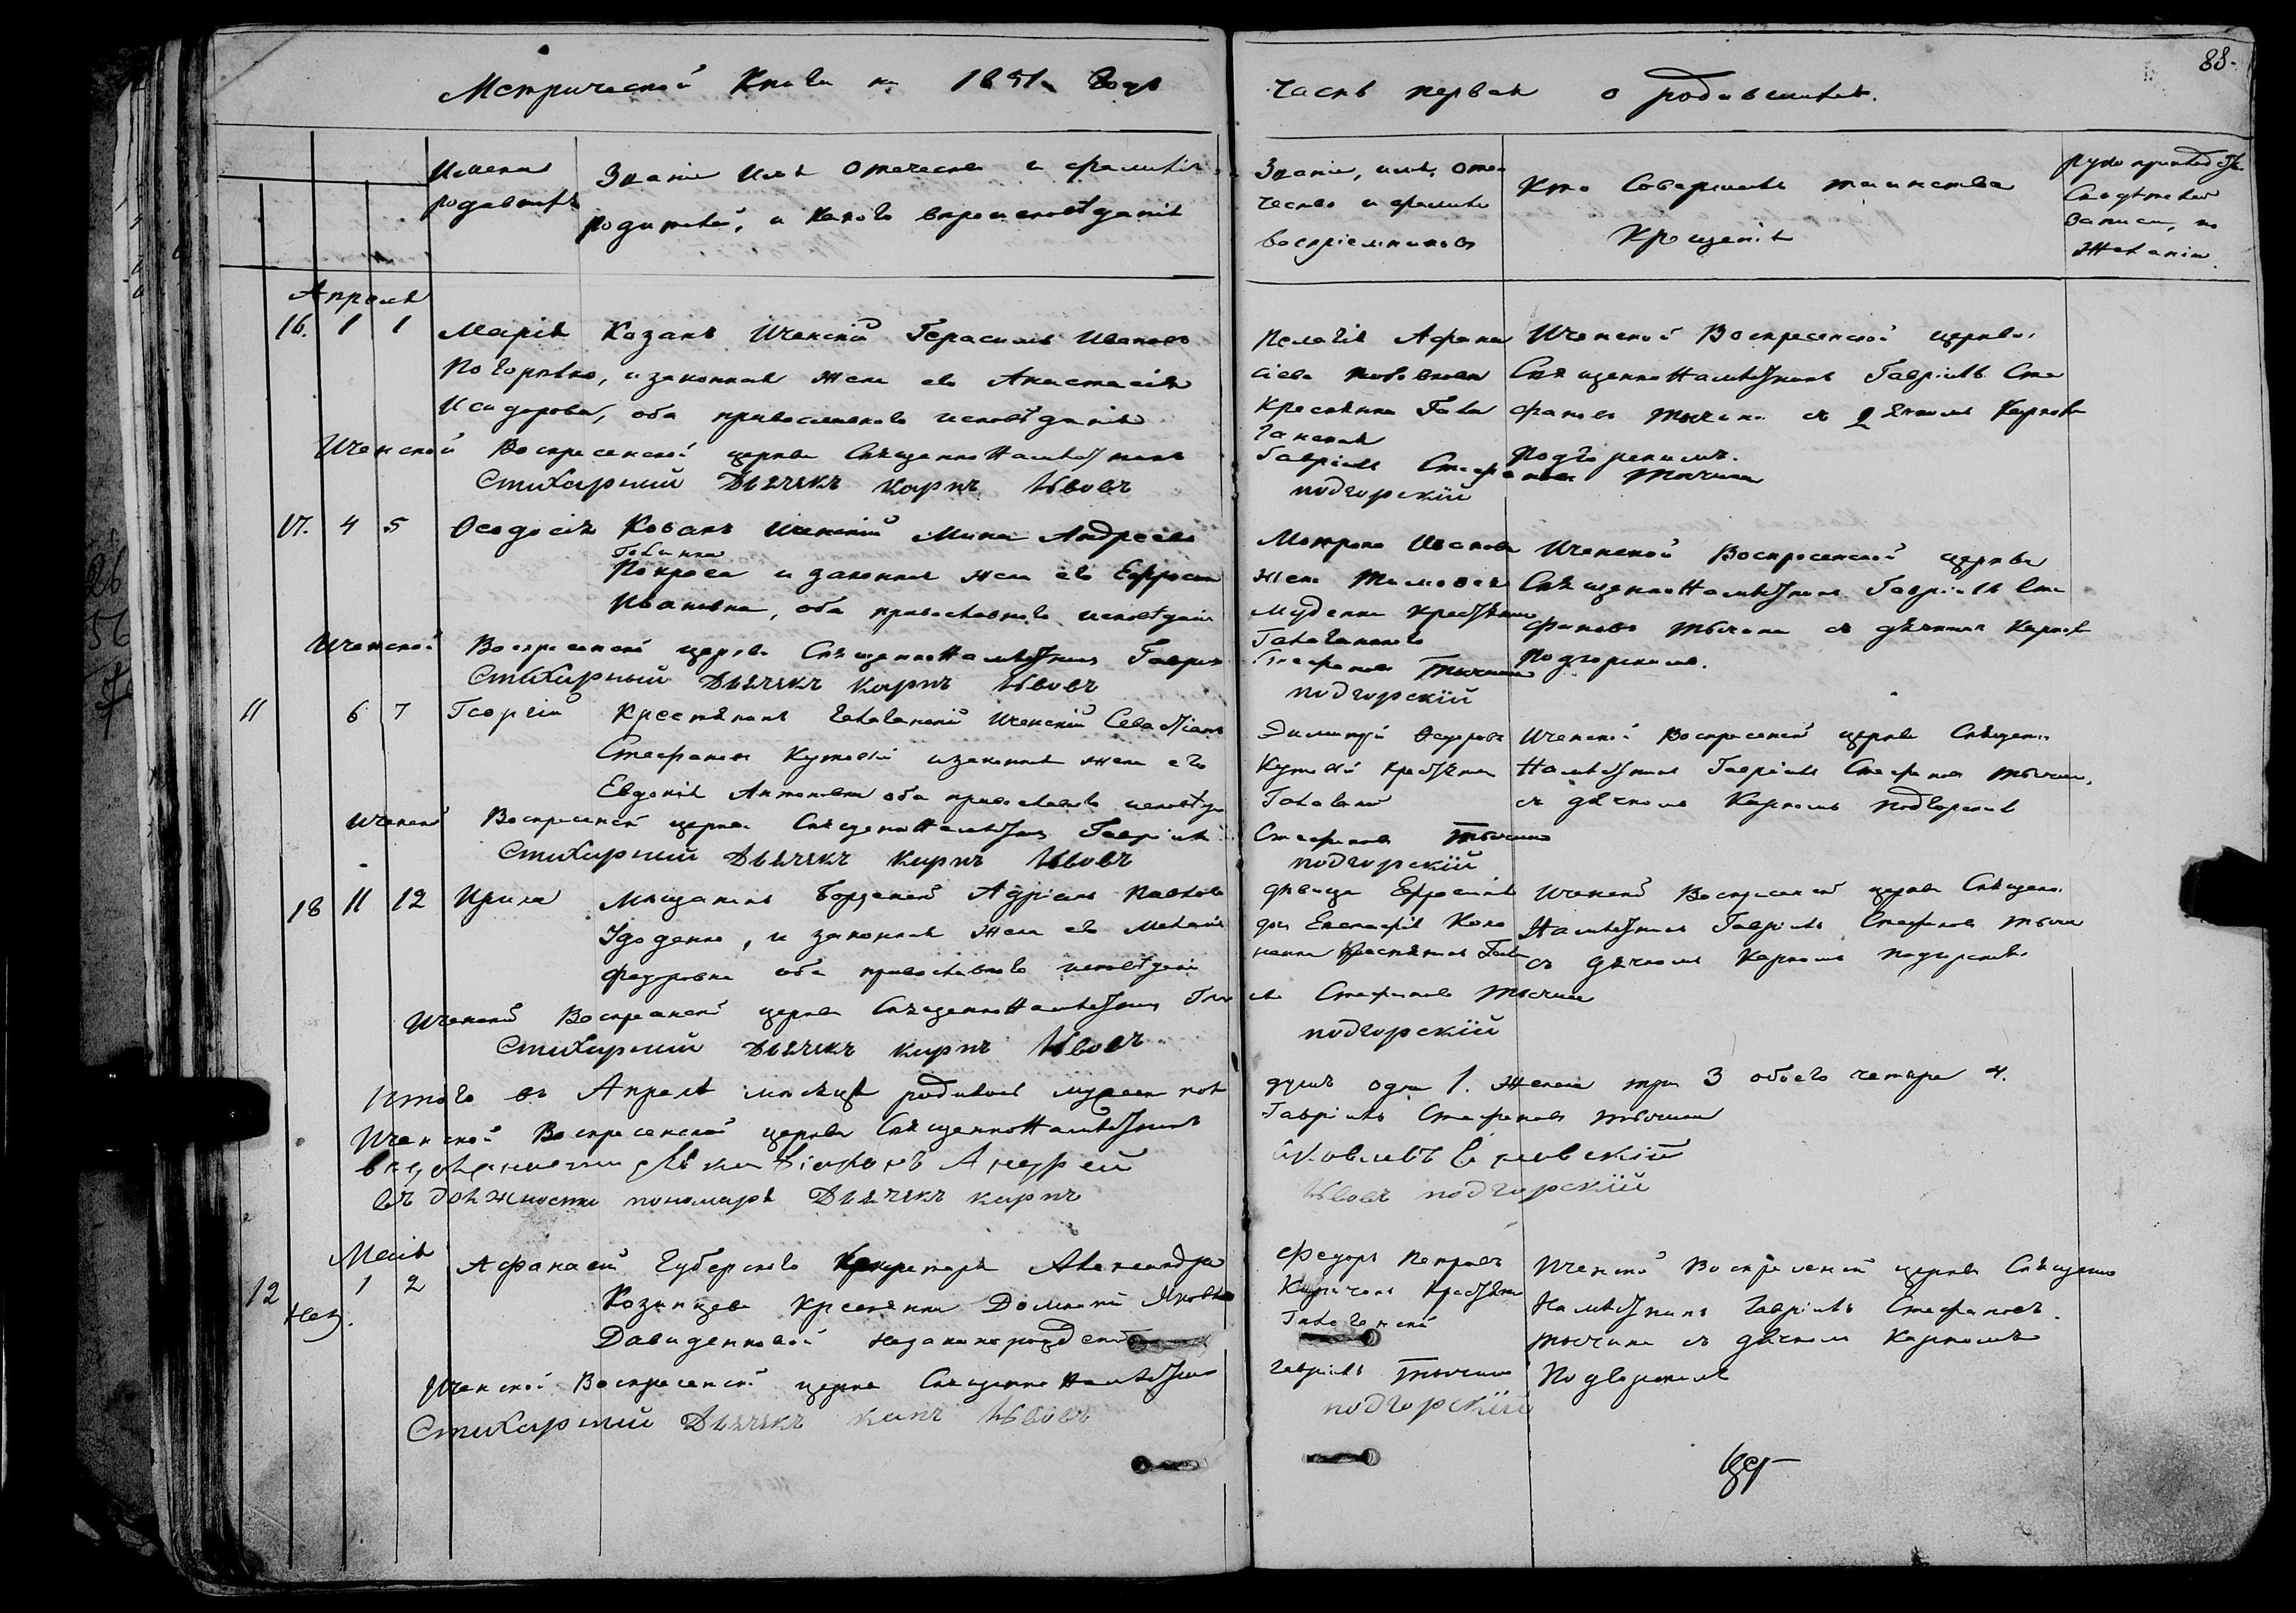 88.
Метрической Книги на 1851. Годъ
Часть первая о родившихся.
Имена родившихъ
Званіе Имя Отечество и фамилія
родителей, и какого вѣроисповѣданія
Званіе, имя, оте
чество и фамилія
воспріемниковъ
Кто Совершалъ таинство
Крещенія
Записи, по
Желанію.
Апрель
16. 1 1 Марія Козакъ Иченскій Герасимъ Ивановъ
и законная жена его Анастасія
Исидорова, оба православнаго исповѣданія
Иченской Воскресенской церкви СвященноНамѣстникъ
Стихарный Дьячекъ Карпъ Львовъ
Пелагія Афана
сіева
Крестянка Гала
ганская
Гавріилъ Стефановъ Тычина
подгорскій
Иченской Воскресенской церкви
СвященноНамѣстникъ Гавріилъ Сте
фановъ Тычина съ дячкомъ Карпомъ
Подгорскимъ.
17. 4 5 Феодосія Козакъ Иченскій Мина Андреевъ
и законная жена его Ефросин
Ивановна, оба православнаго исповѣданія
Иченской Воскресенской церкви СвященноНамѣстникъ Гавріилъ
Стихарный Дьячекъ Карпъ Львовъ
Матрона Иванова
жена Тимофея
Галаганскаго
Стефановъ Тычина
подгорскій
Иченской Воскресенской церкви
СвященноНамѣстникъ Гавріилъ Сте
фановъ Тычина съ дячкомъ Карпомъ
Подгорскимъ.
11 6 7 Георгій Крестянинъ Галаганскій Иченскій Севастіанъ
Стефановъ Кутовій и законная жена его
Евдокія Антоновна оба православнаго исповѣдан
Иченской Воскресенской церкви СвященноНамѣстникъ Гавріилъ
Стихарный Дьячекъ Карпъ Львовъ
Димитрій Федоровъ
Кутовій Крестянинъ
Стефановъ Тычина
подгорскій
Иченской Воскресенской церкви Священно
Намѣстникъ Гавріилъ Стефановъ Тычина,
съ дячкомъ Карпомъ Подгорским
18 11 12 Ирина Мѣщанинъ Борзенскій Адріанъ Павловъ
и законная жена его Меланія
Федоровна оба православнаго исповѣдані
Иченской Воскресенской церкви СвященноНамѣстникъ Гаврі
Стихарный Дьячекъ Карпъ Львовъ
дѣвица Ефросинія
илъ Стефановъ Тычина
подгорскій
Иченской Воскресенской церкви Священно
Намѣстникъ Гавріилъ Стефановъ Тычи
съ дячкомъ Карпомъ Подгорскимъ
Итого въ Апрелѣ мѣсяцѣ родилось мужеск пол
душъ одна 1. Женска три 3 обоего четыре 4.
Иченской Воскресенской церкви СвященноНамѣстникъ
Гавріилъ Стефановъ Тычина
Діаконъ Андрей
Яковлевъ
въ должности пономаря Дьячекъ карпъ
Львовъ подгорскій
Маія
12 нез. 1 2 Афанасій Губернскаго Секретаря Александра
Козинцева Крестянки Домникіи Яковл
Давиденковой незаконорожденный
Иченской Воскресенской церкви СвященноНамѣстник
Стихарный Дьячекъ карпъ Львовъ
Федоръ Петровъ
Крестянин
Галаганскій
Гавріилъ Тычина
подгорскій
Иченской Воскресенской церкви Священно
Намѣстникъ Гавріилъ Стефановъ
Тычина съ дячкомъ Карпомъ
Подгорским